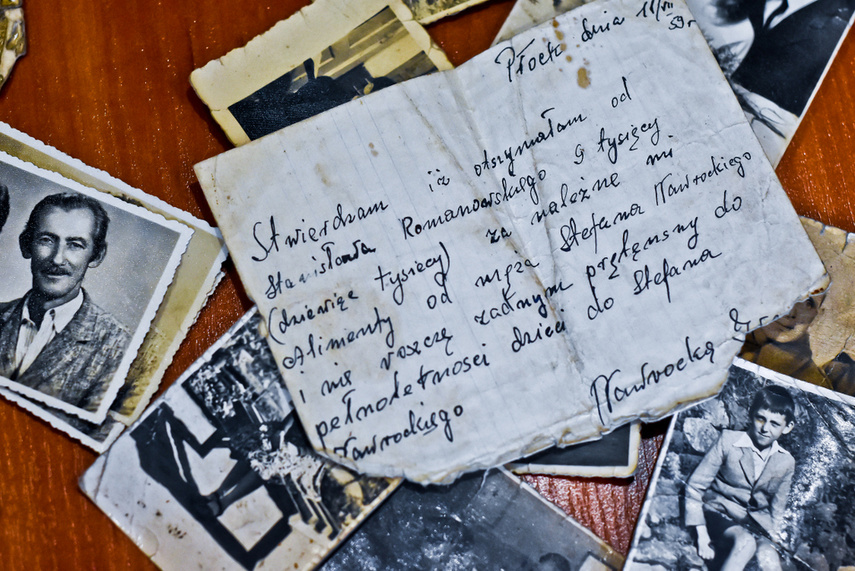 Płock dnia 11/VII
59r
Stwierdzam iż otrzymałam od
Stanisława Romanowskiego 9 tysięcy
(dziewięć tysięcy) za należne mi
Alimenty od męża Stefana Nawrockiego
i nie roszczę żadnym prętęnsny do
pełnoletności dzieci do Stefana
Nawrockiego
Nawrocka